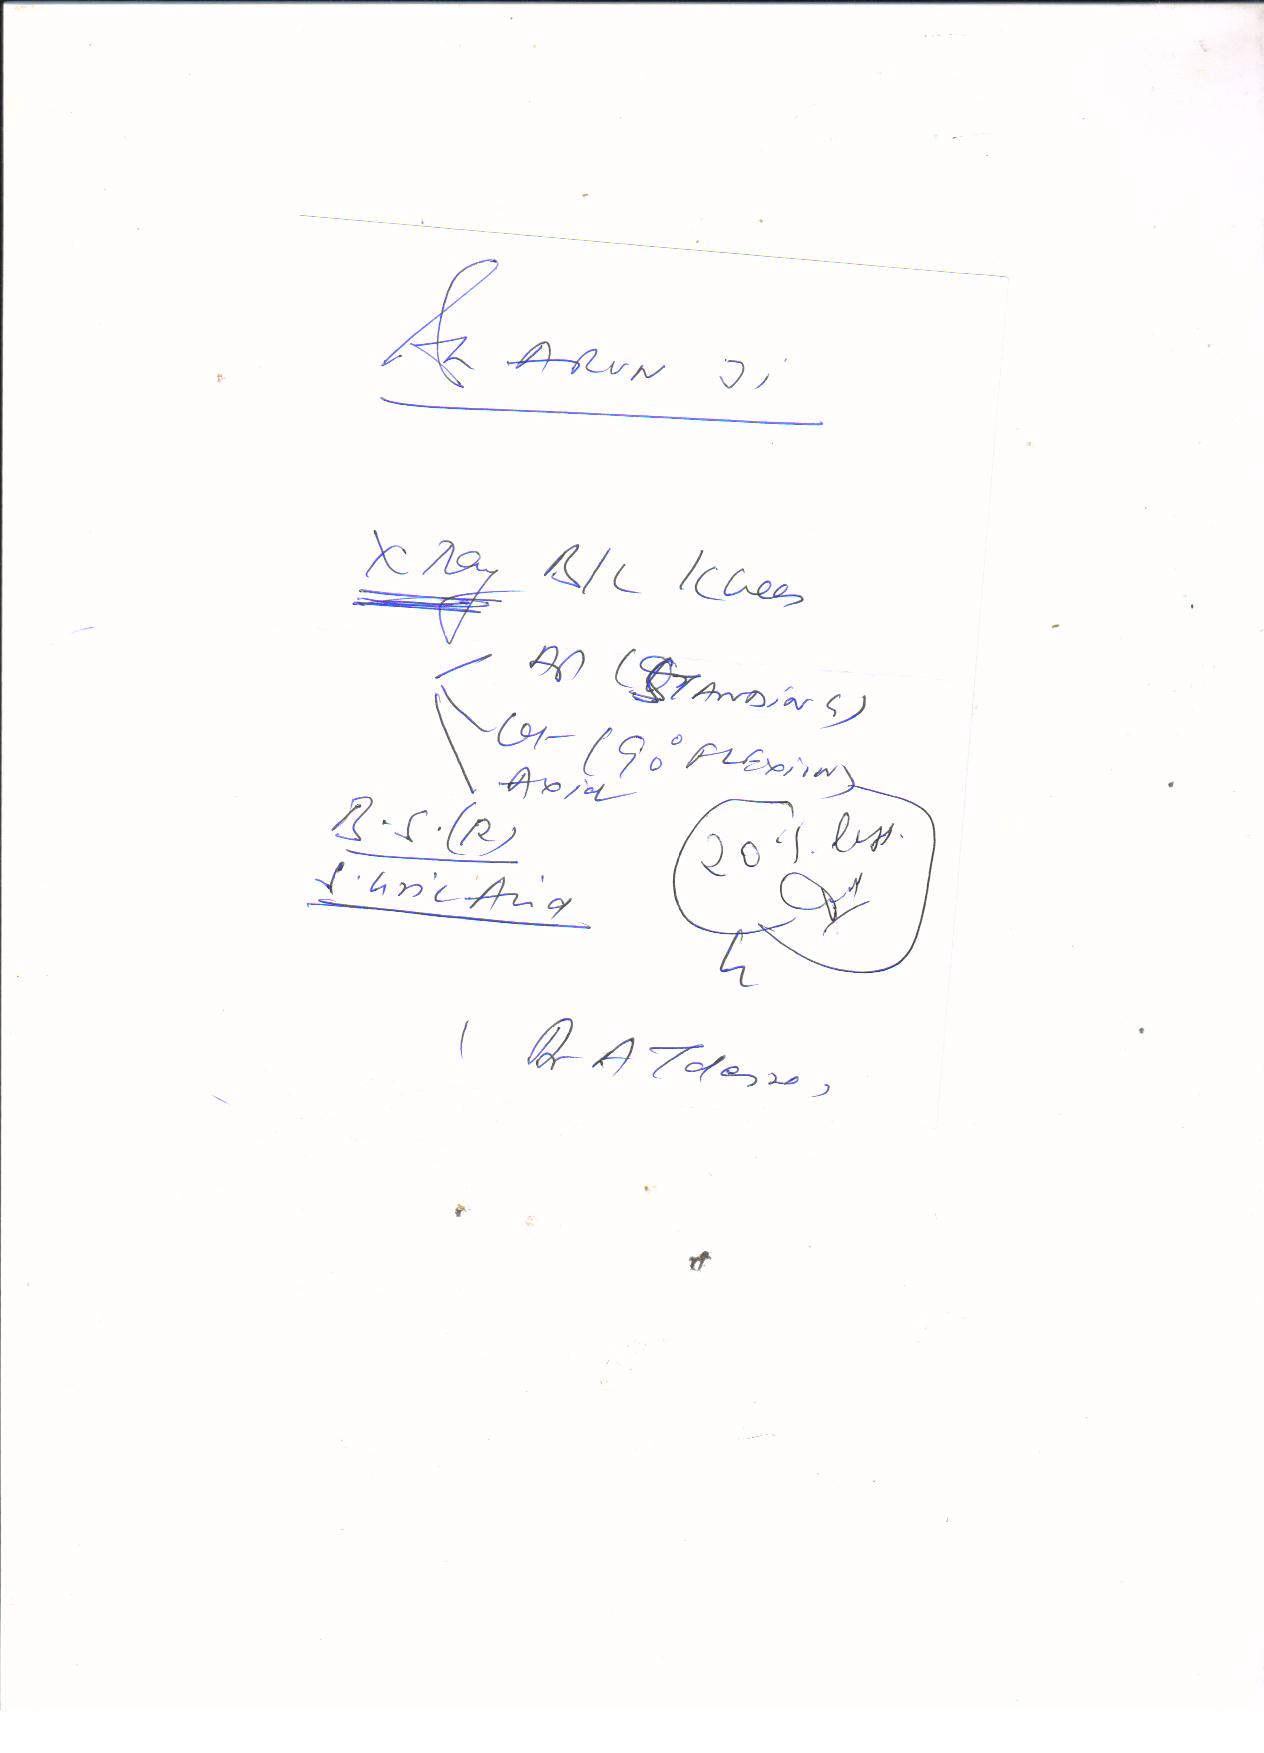 ARUN Ji
X Ray B/L Knees
AP (STANDING)
Lat (90° FLEXION)
Axial
B.S.(R)
S. Uric Acid
20%. less.
Dr A